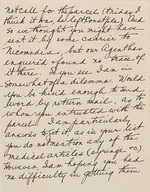 not call for the parcel (Friday I
think it was he left Constple) and
so we thought you might have
sent it by some carrier to
Nicomedia, but our Agent has
enquired & found no trace of
it there. So you see I am in
somewhat of a dilemma. Would
you be kind enough to send
word by return mail, as to
whom you entrusted with the
parcel. I am particularly
anxious to get it, as in your list
you do not mention any of the
medical articles (syringe &c).
However I am hoping you had
no difficulty in getting them